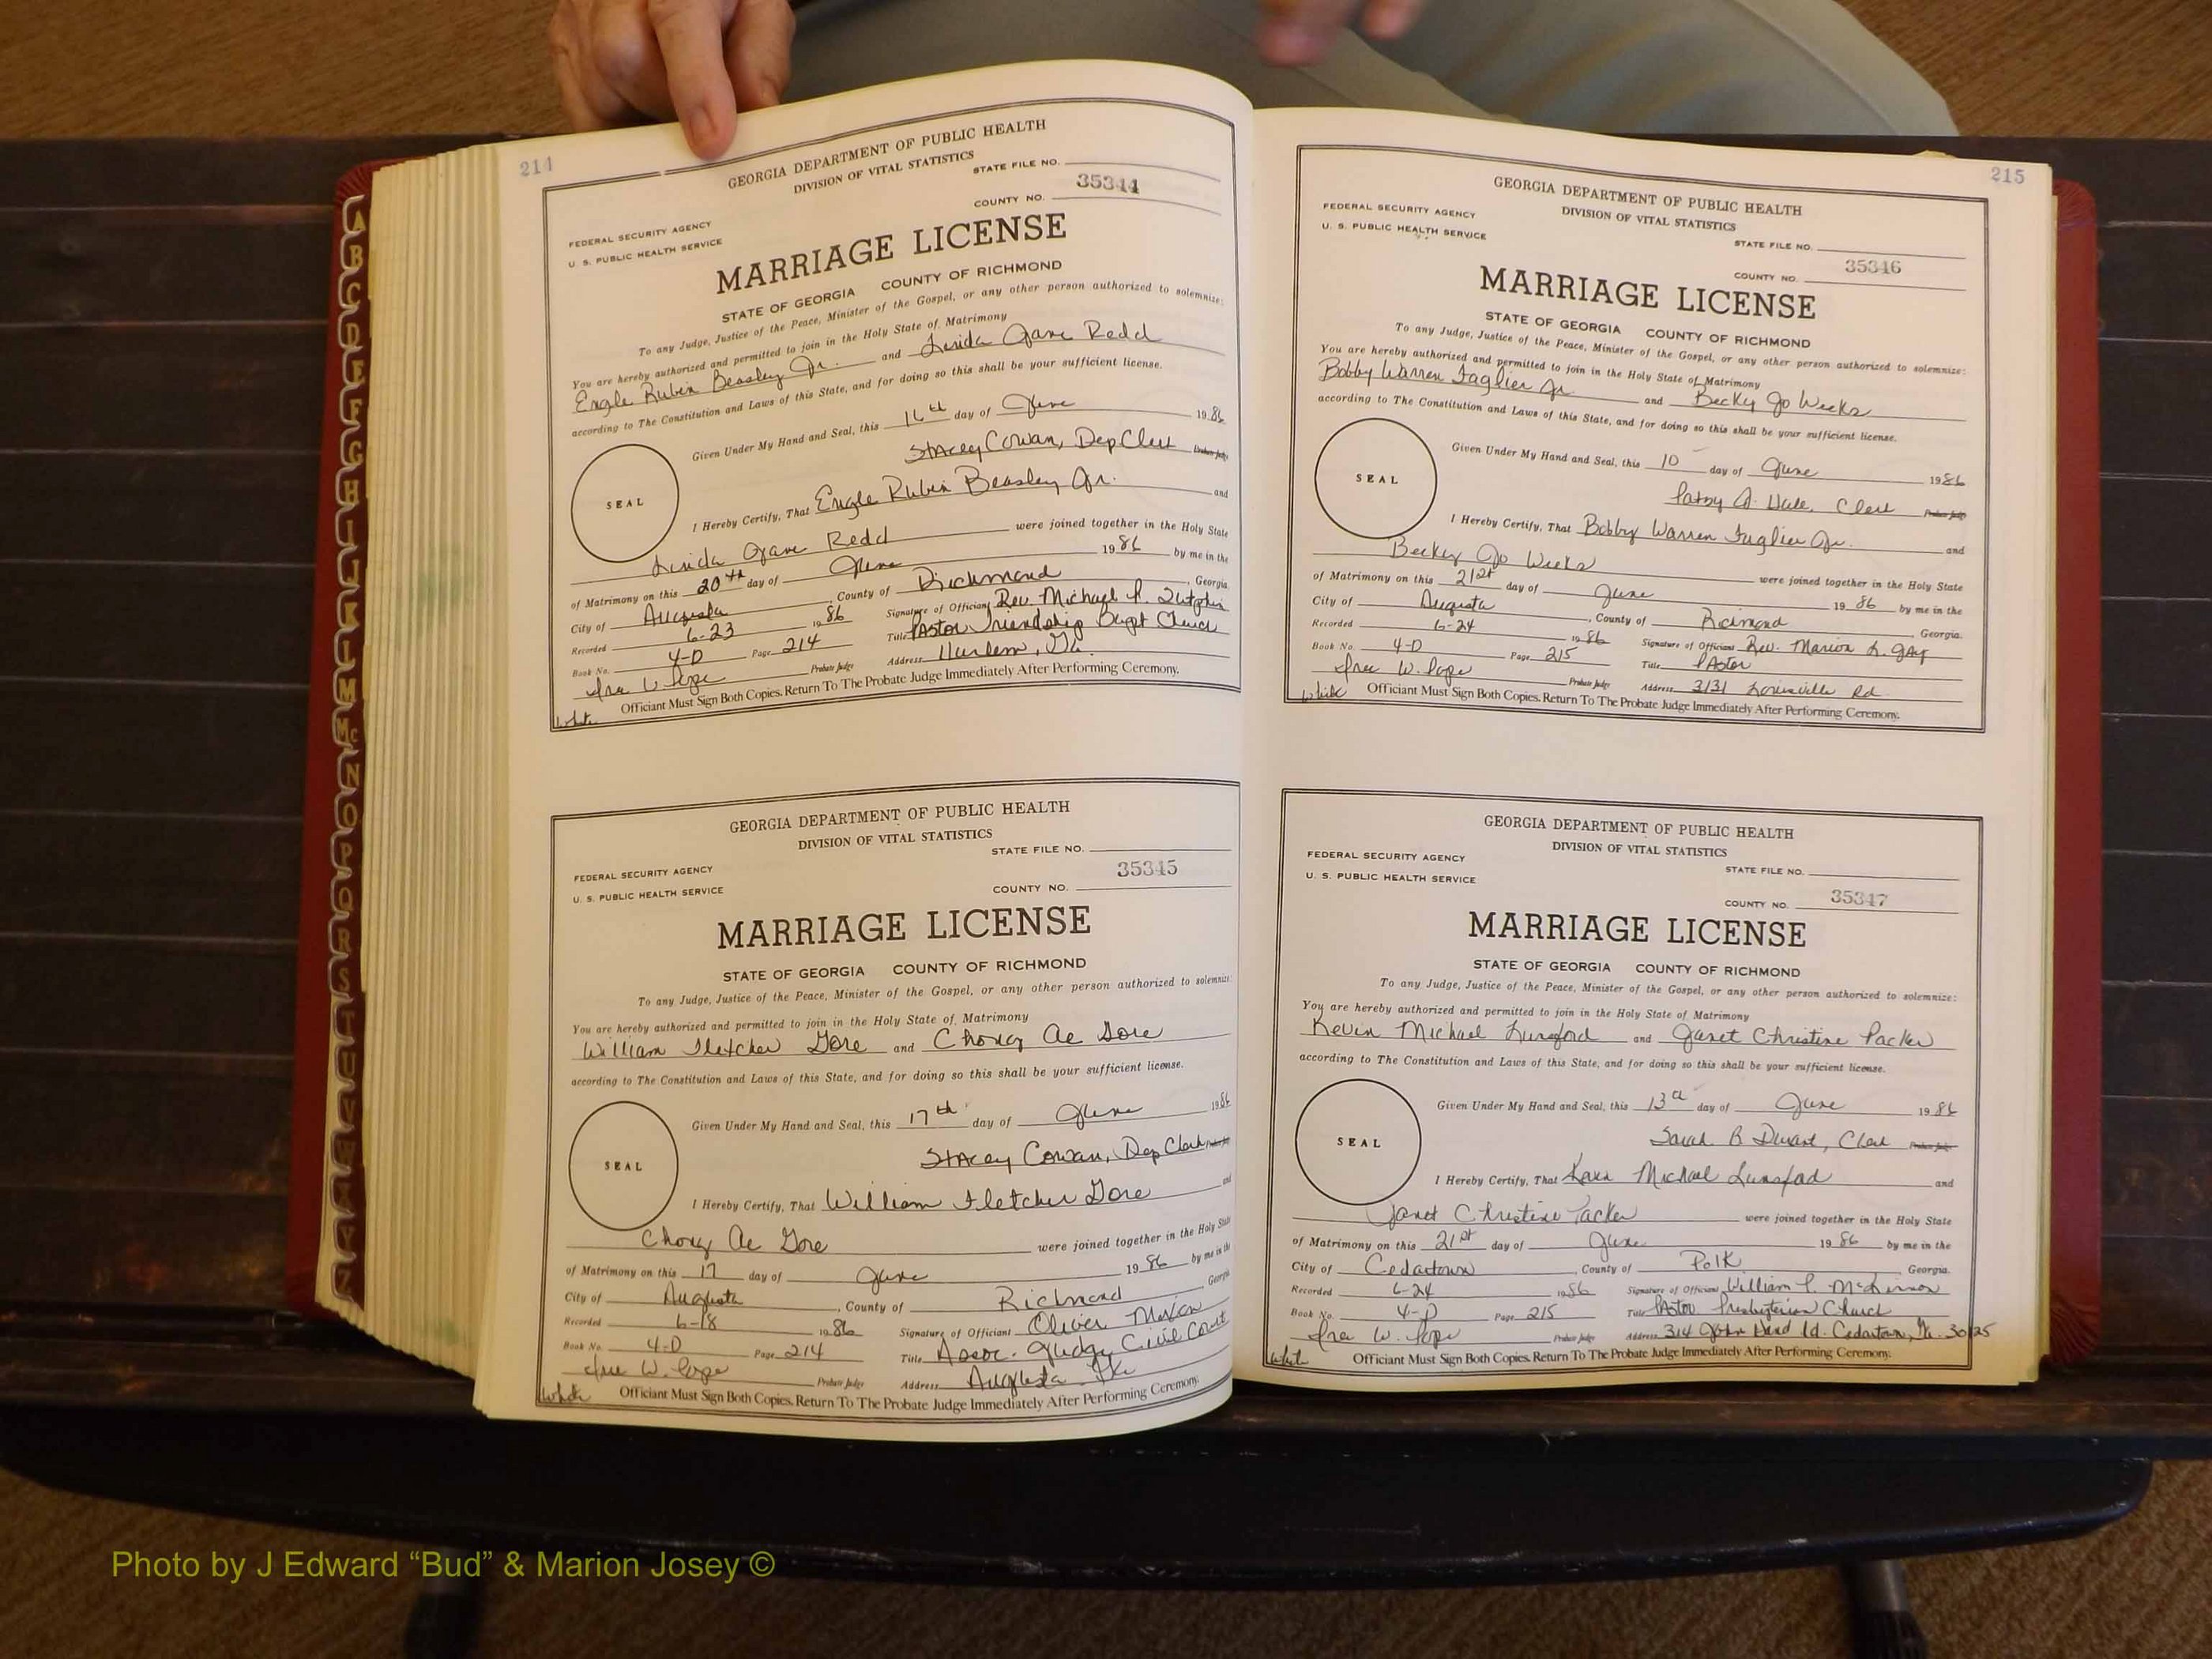 214
GEORGIA DEPARTMENT OF PUBLIC HEALTH
DIVISION OF VITAL STATISTICS
STATE FILE NO.
35344
COUNTY NO.
FEDERAL SECURITY AGENCY
U. S. PUBLIC HEALTH SERVICE
MARRIAGE LICENSE
STATE OF GEORGIA COUNTY OF RICHMOND
To any Judge, Justice of the Peace, Minister of the Gospel, or any other person authorized to solemnize:
You are hereby authorized and permitted to join in the Holy State of Matrimony
Engle Rubin Beasley Jr. and Linda Jane Redd
according to The Constitution and Laws of this State, and for doing so this shall be your sufficient license.
Given Under My Hand and Seal, this 16th day of June 1986
Stacey Cowan, Dep Clerk Probate Judge
SEAL
I Hereby Certify, That Engle Rubin Beasley Jr. and
Linda Jane Redd were joined together in the Holy State
of Matrimony on this 20th day of June 1986 by me in the
City of Augusta, County of Richmond, Georgia.
Recorded 6-23 1986 Signature of Officiant Rev. Michael
Book No. 4-D Page 214 Title Pastor Friendship Bapt Church
Ira W. Pope Probate Judge Address Harlem, Ga.
White Officiant Must Sign Both Copies. Return To The Probate Judge Immediately After Performing Ceremony.
GEORGIA DEPARTMENT OF PUBLIC HEALTH
DIVISION OF VITAL STATISTICS
STATE FILE NO.
35345
COUNTY NO.
FEDERAL SECURITY AGENCY
U. S. PUBLIC HEALTH SERVICE
MARRIAGE LICENSE
STATE OF GEORGIA COUNTY OF RICHMOND
To any Judge, Justice of the Peace, Minister of the Gospel, or any other person authorized to solemnize:
You are hereby authorized and permitted to join in the Holy State of Matrimony
William Fletcher Gore and Chong Ae Gore
according to The Constitution and Laws of this State, and for doing so this shall be your sufficient license.
Given Under My Hand and Seal, this 17th day of June 1986
Stacey Cowan, Dep Clerk Probate Judge
SEAL
I Hereby Certify, That William Fletcher Gore and
Chong Ae Gore were joined together in the Holy State
of Matrimony on this 17 day of June 1986 by me in the
City of Augusta, County of Richmond Georgia
Recorded 6-18 1986 Signature of Officiant Oliver Mixon
Book No. 4-D Page 214 Title Assoc. Judge, Civil Court
Ira W. Pope Probate Judge Address Augusta Ga
White Officiant Must Sign Both Copies. Return To The Probate Judge Immediately After Performing Ceremony.
215
GEORGIA DEPARTMENT OF PUBLIC HEALTH
DIVISION OF VITAL STATISTICS
FEDERAL SECURITY AGENCY
U. S. PUBLIC HEALTH SERVICE
STATE FILE NO.
35346
COUNTY NO.
MARRIAGE LICENSE
STATE OF GEORGIA COUNTY OF RICHMOND
To any Judge, Justice of the Peace, Minister of the Gospel, or any other person authorized to solemnize:
You are hereby authorized and permitted to join in the Holy State of Matrimony
Bobby Warren Faglier Jr. and Becky Jo Weeks
according to The Constitution and Laws of this State, and for doing so this shall be your sufficient license.
Given Under My Hand and Seal, this 10 day of June 1986
Patsy A. Hall, Clerk Probate Judge
SEAL
I Hereby Certify, That Bobby Warren Faglier Jr. and
Becky Jo Weeks were joined together in the Holy State
of Matrimony on this 21st day of June 1986 by me in the
City of Augusta, County of Richmond Georgia.
Recorded 6-24 1986 Signature of Officiant Rev. Marion L. Gay
Book No. 4-D Page 215 Title Pastor
Ira W. Pope Probate Judge Address 3131 Louisville Rd
White Officiant Must Sign Both Copies. Return To The Probate Judge Immediately After Performing Ceremony.
GEORGIA DEPARTMENT OF PUBLIC HEALTH
DIVISION OF VITAL STATISTICS
FEDERAL SECURITY AGENCY
U. S. PUBLIC HEALTH SERVICE
STATE FILE NO.
35347
COUNTY NO.
MARRIAGE LICENSE
STATE OF GEORGIA COUNTY OF RICHMOND
To any Judge, Justice of the Peace, Minister of the Gospel, or any other person authorized to solemnize:
You are hereby authorized and permitted to join in the Holy State of Matrimony
Kevin Michael Lunsford and Janet Christine Packer
according to The Constitution and Laws of this State, and for doing so this shall be your sufficient license.
Given Under My Hand and Seal, this 13th day of June 1986
Sarah B , Clerk Probate Judge
SEAL
I Hereby Certify, That Kevin Michael Lunsford and
Janet Christine Packer were joined together in the Holy State
of Matrimony on this 21st day of June 1986 by me in the
City of Cedartown, County of Polk Georgia.
Recorded 6-24 1986 Signature of Officiant William P. McKinnon
Book No. 4-D Page 215 Title Pastor Presbyterian Church
Ira W. Pope Probate Judge Address 314 John Hand Rd. Cedartown, Ga. 30125
White Officiant Must Sign Both Copies. Return To The Probate Judge Immediately After Performing Ceremony.
A
B
C
D
E
F
G
H
I
J
K
L
M
Mc
N
O
P
Q
R
S
T
U
V
W
X
Y
Z
Photo by J Edward “Bud” & Marion Josey ©